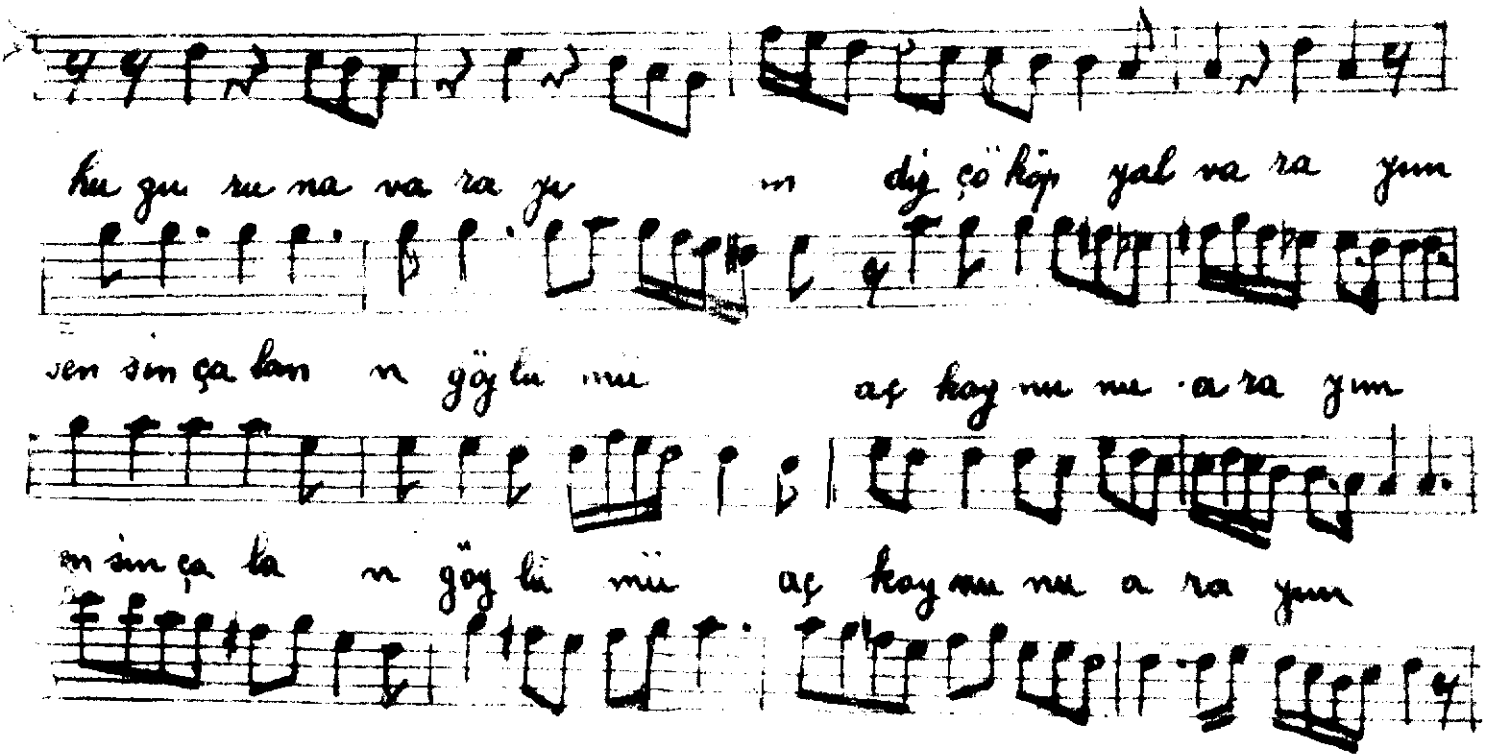 hu zu ru na va ra yı m diz çö köp yal va ra yım
sen sin ça lan n gön lü mü aç koy nu nu a ra yım
en sin ça la n gön lü mü aç koy nu nu a ra yım